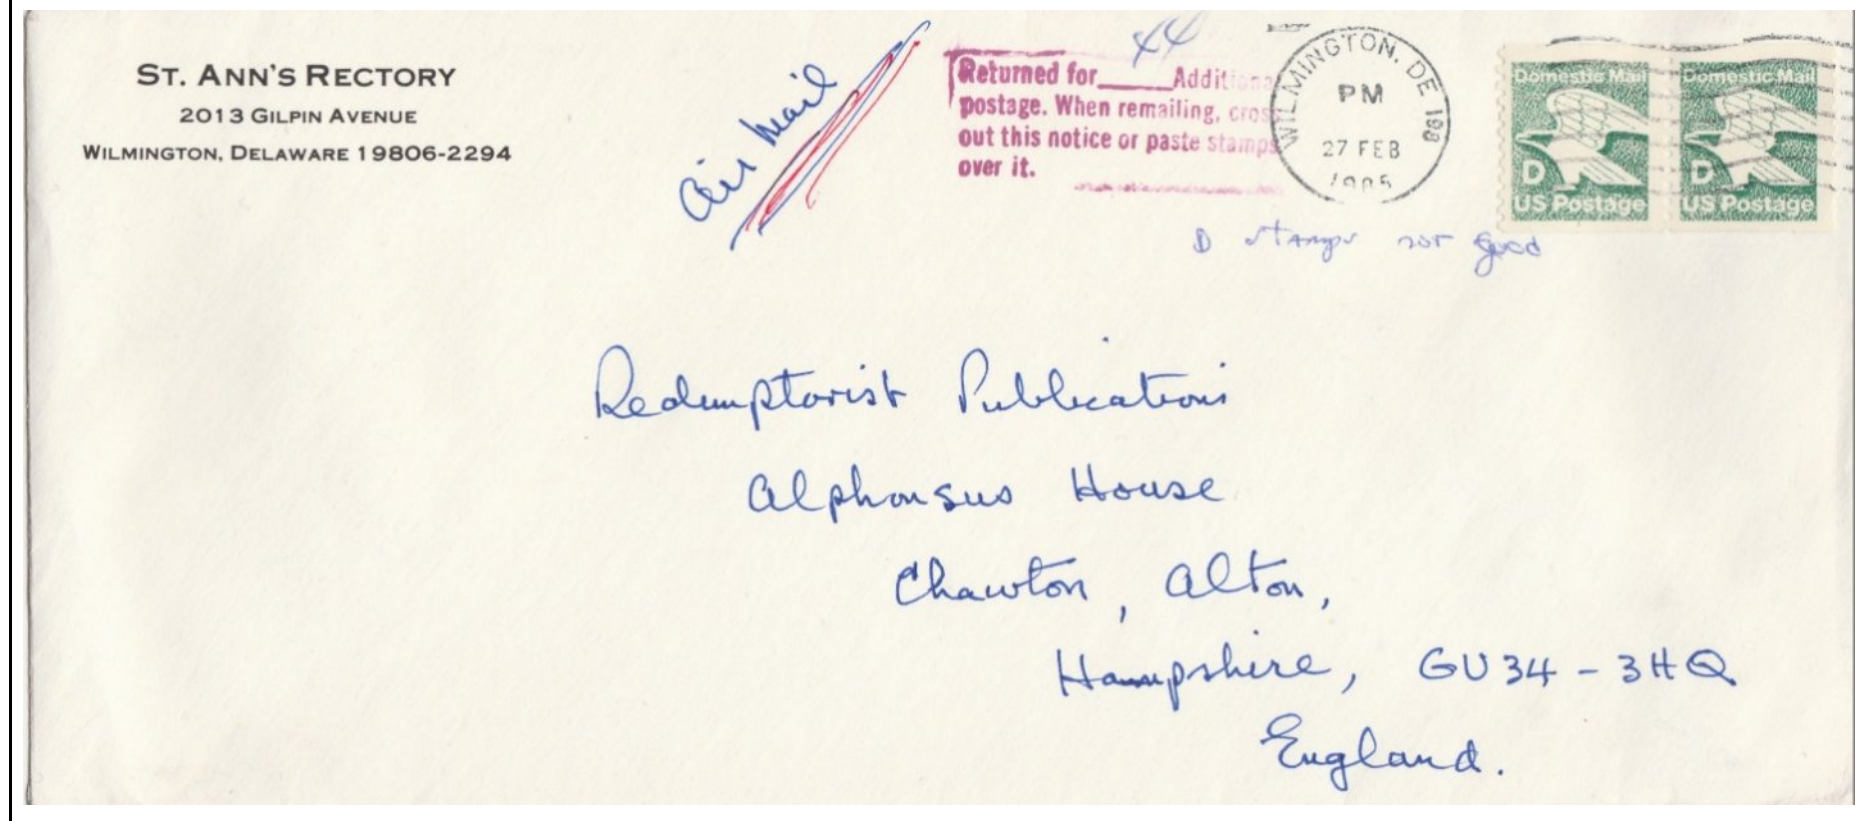 ST. ANN'S RECTORY
2013 GILPIN AVENUE
WILMINGTON, DELAWARE 19806-2294
Air Mail
44
Returned for____Additional
postage. When remailing, cross
out this notice or paste stamps
over it.
WILMINGTON, DE 198
PM
27 FEB
1985
Domestic Mail
D
US Postage
Domestic Mail
D
US Postage
D stamps not good
Redemptorist Publications
Alphonsus House
Chawton, Alton,
Hampshire, GU34-3HQ
England.